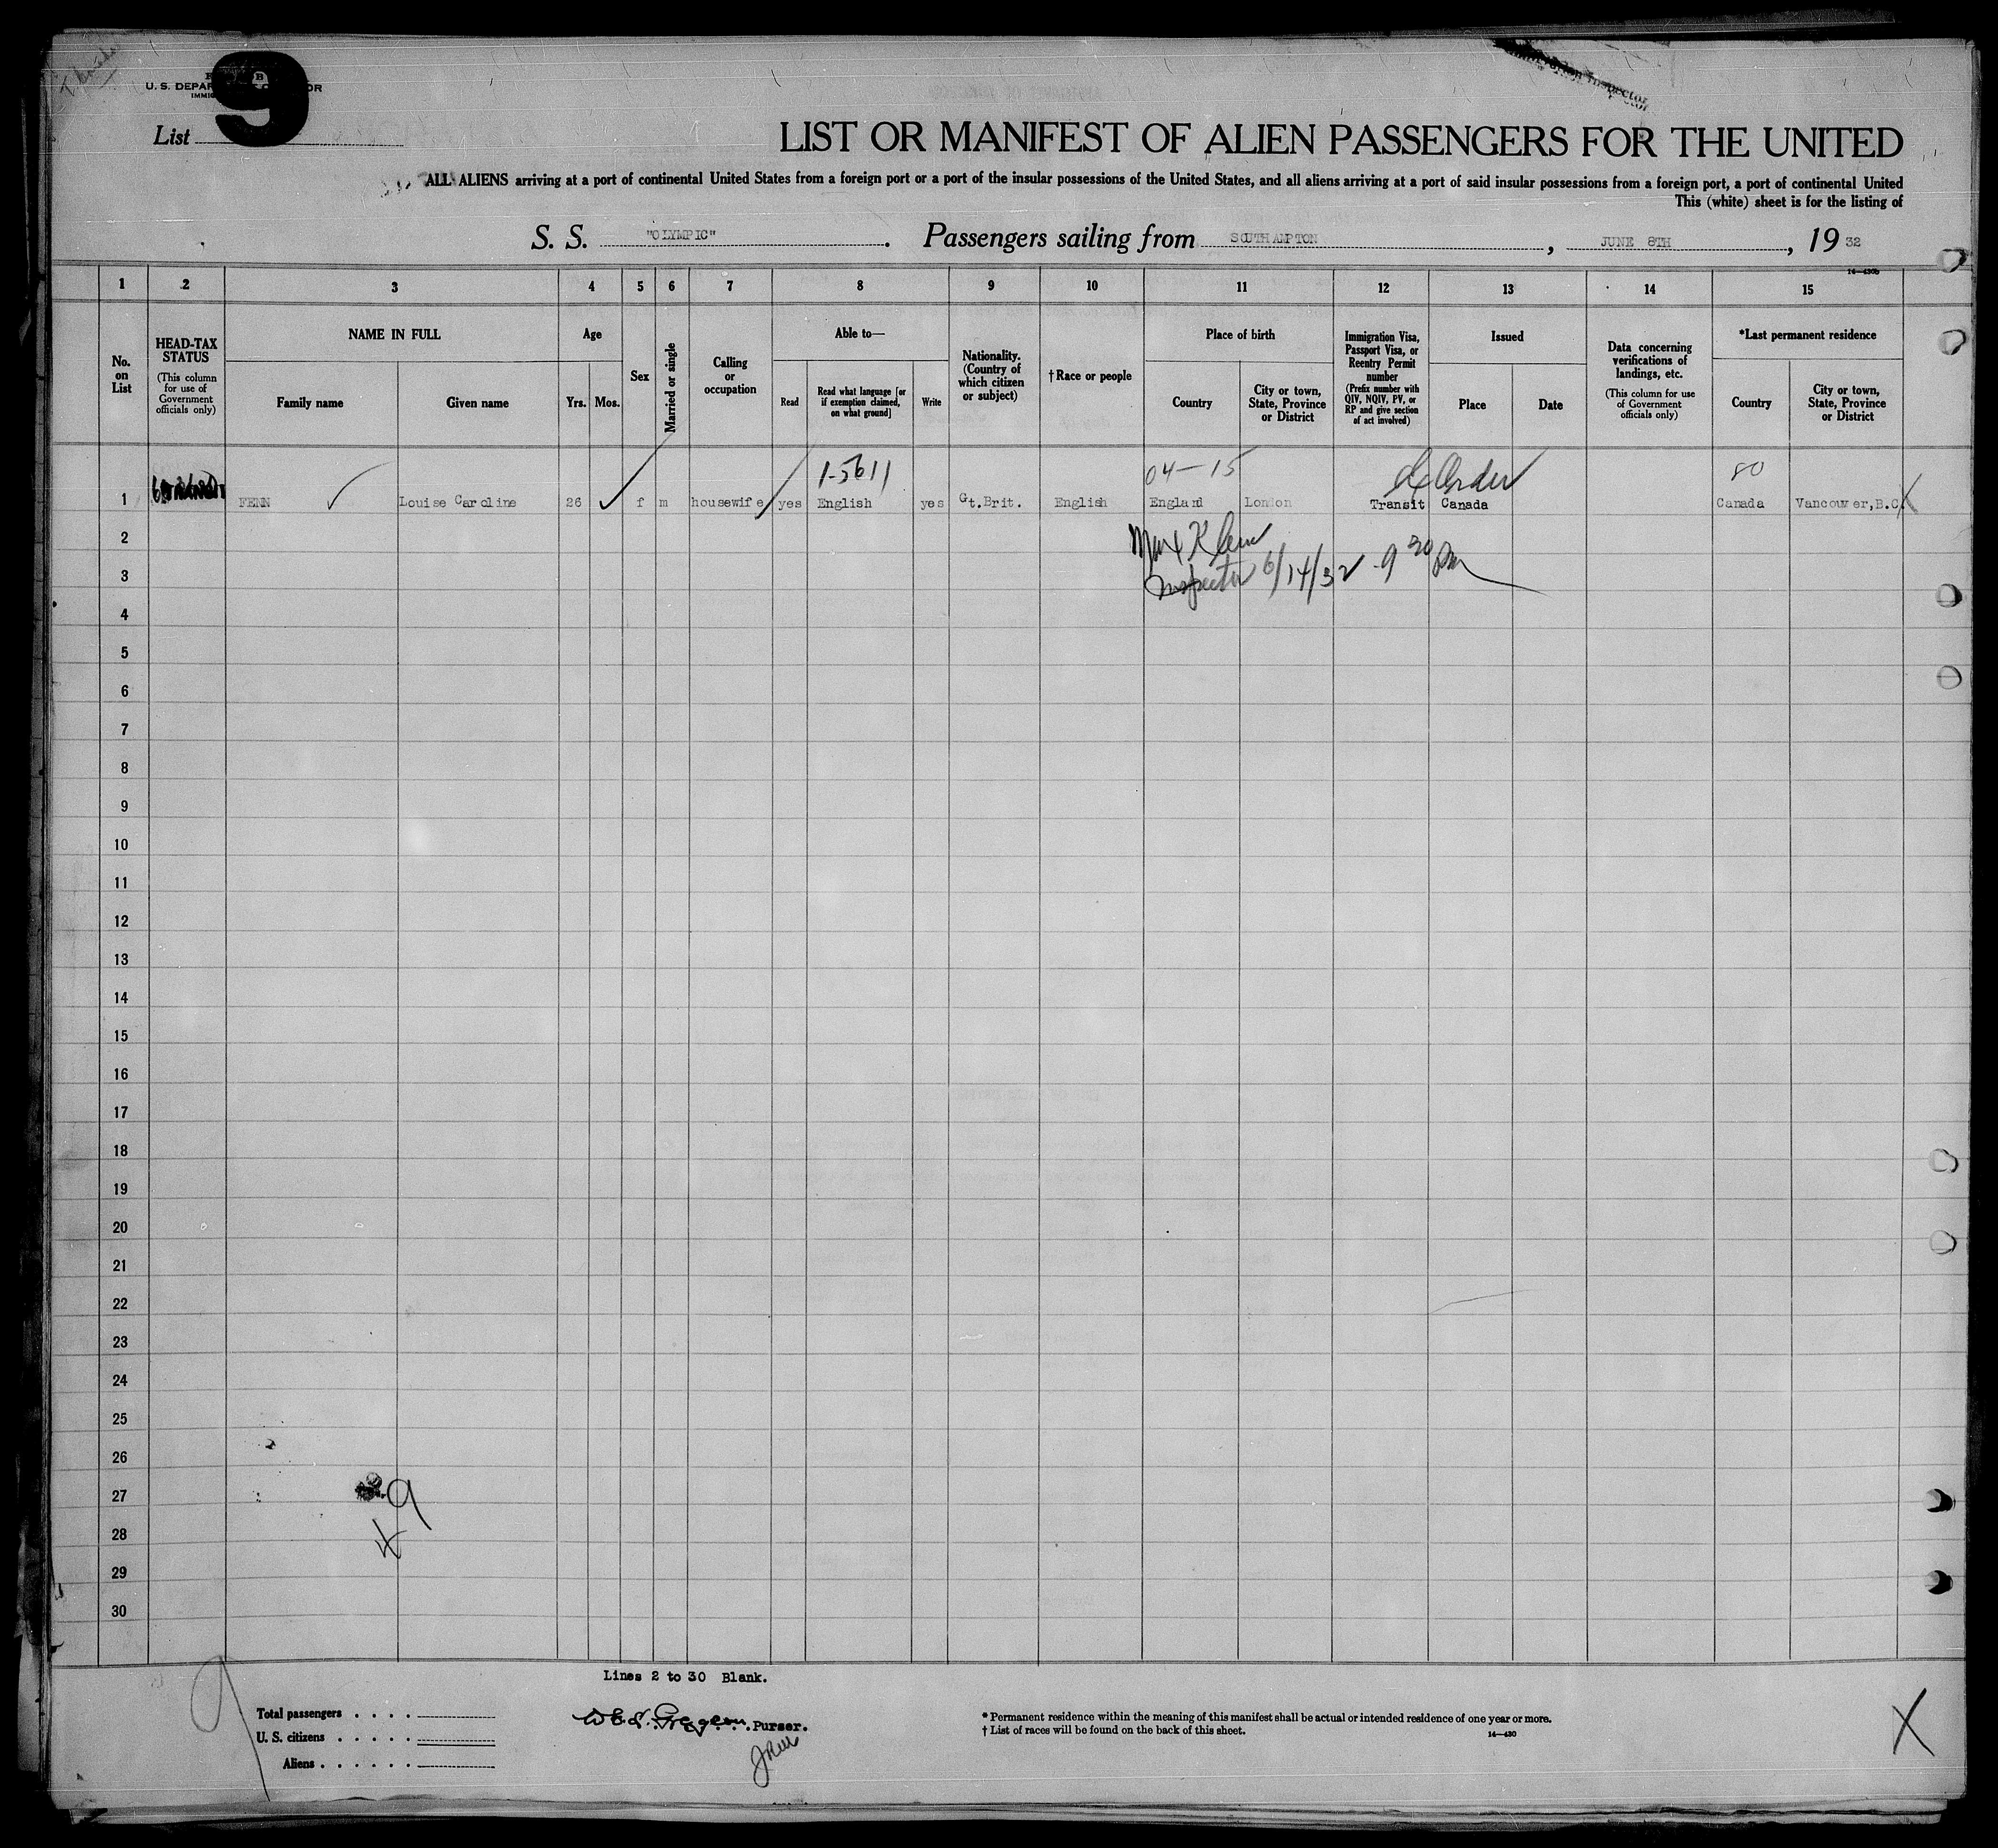 U. S. DEPAR OR
IMMIG
List 9
Immigration Inspector
LIST OR MANIFEST OF ALIEN PASSENGERS FOR THE UNITED
ALL ALIENS arriving at a port of continental United States from a foreign port or a port of the insular possessions of the United States, and all aliens arriving at a port of said insular possessions from a foreign port, a port of continental United
This (white) sheet is for the listing of
S. S. "OLYMPIC". Passengers sailing from SOUTHAMPTON, JUNE 8TH, 19 32
14—430b
1 2 3 4 5 6 7 8 9 10 11 12 13 14 15
No. on List
HEAD-TAX STATUS (This column for use of Government officials only)
NAME IN FULL
Family name Given name
Age
Yrs. Mos.
Sex
Married or single
Calling or occupation
Able to—
Read Read what language [or if exemption claimed, on what ground] Write
Nationality. (Country of which citizen or subject)
†Race or people
Place of birth
Country City or town, State, Province or District
Immigration Visa, Passport Visa, or Reentry Permit number (Prefix number with QIV, NQIV, PV, or RP and give section of act involved)
Issued
Place Date
Data concerning verifications of landings, etc. (This column for use of Government officials only)
*Last permanent residence
Country City or town, State, Province or District
1-5611 04-15 Order 80
1 TRANSIT FENN Louise Caroline 26 f m housewife yes English yes Gt.Brit. English England London Transit Canada Canada Vancouver,B.C. X
2 Max Klein
3 Inspector 6/14/32 - 9 30 pm
4
5
6
7
8
9
10
11
12
13
14
15
16
17
18
19
20
21
22
23
24
25
26
27 9
28
29
30
9
Lines 2 to 30 Blank.
Total passengers . . . .
U. S. citizens . . . . .
Aliens . . . . . .
Purser.
* Permanent residence within the meaning of this manifest shall be actual or intended residence of one year or more.
† List of races will be found on the back of this sheet.
14—430
X